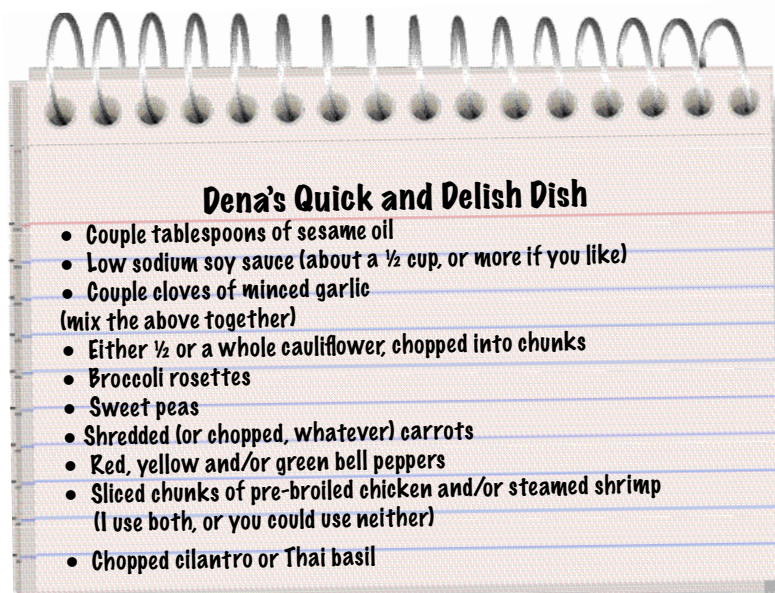 Dena's Quick and Delish Dish
• Couple tablespoons of sesame oil
• Low sodium soy sauce (about a ½ cup, or more if you like)
• Couple cloves of minced garlic
(mix the above together)
• Either ½ or a whole cauliflower, chopped into chunks
• Broccoli rosettes
• Sweet peas
• Shredded (or chopped, whatever) carrots
• Red, yellow and/or green bell peppers
• Sliced chunks of pre-broiled chicken and/or steamed shrimp
(I use both, or you could use neither)
• Chopped cilantro or Thai basil